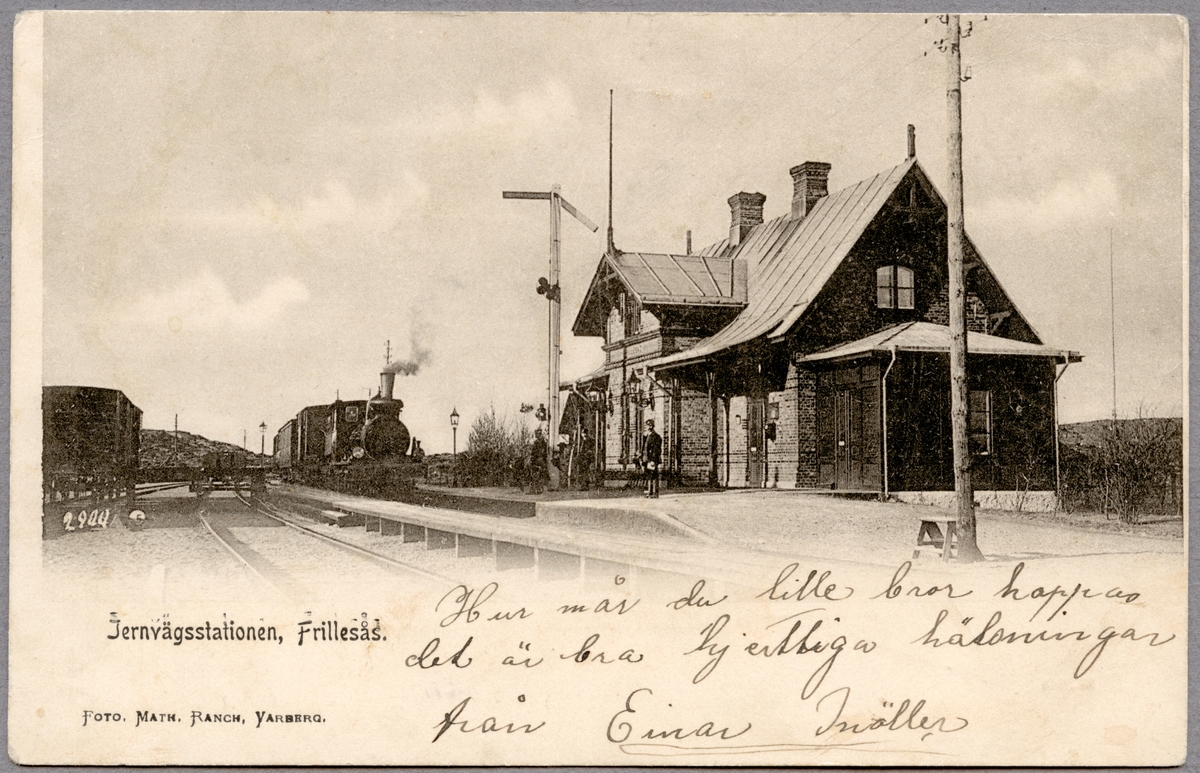 2944
Jernvägsstationen, Frillesås.
Hur mår du lille bror hoppas
det är bra hjerttliga hälsningar
från Einar Möller
Foto. Math. Ranch, Varberg.